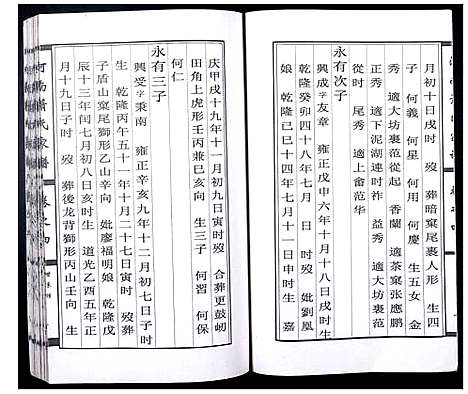 月初十日戌時 歿 葬暗窠尾裹人形 生四
子 何義 何星 何慶 何 生五女 金
秀 適大坊裏范從起 香蘭 適茶窠張應鵬
正秀 適下泥湖連時祚 益秀 適大坊裏范
從時 尾秀 適上畬范华
永有次子
興成字友章 雍正戊申六年十月十八日戌時
生 乾隆癸卯四十八年七月 日 時歿 妣劉鳳
娘 乾隆己巳十四年七月十一日申時生 嘉
慶甲戌十九年十一月初九日戌時 歿 合葬更鼓岃
田角上虎形壬丙兼巳亥向 生三子 何習 何保
何仁
永有三子
興受字秉南 雍正辛亥九年十二月初七日子時
生 乾隆丙午五十一年十月二十七日寅時 歿葬
子盾山窠尾獅形乙山辛向 妣廖福明娘 乾隆戊
辰十三年閏七月初八日亥時生 道光乙酉五年正
月十九日子時 歿 葬後龍背獅形丙山壬向 生
卷之四